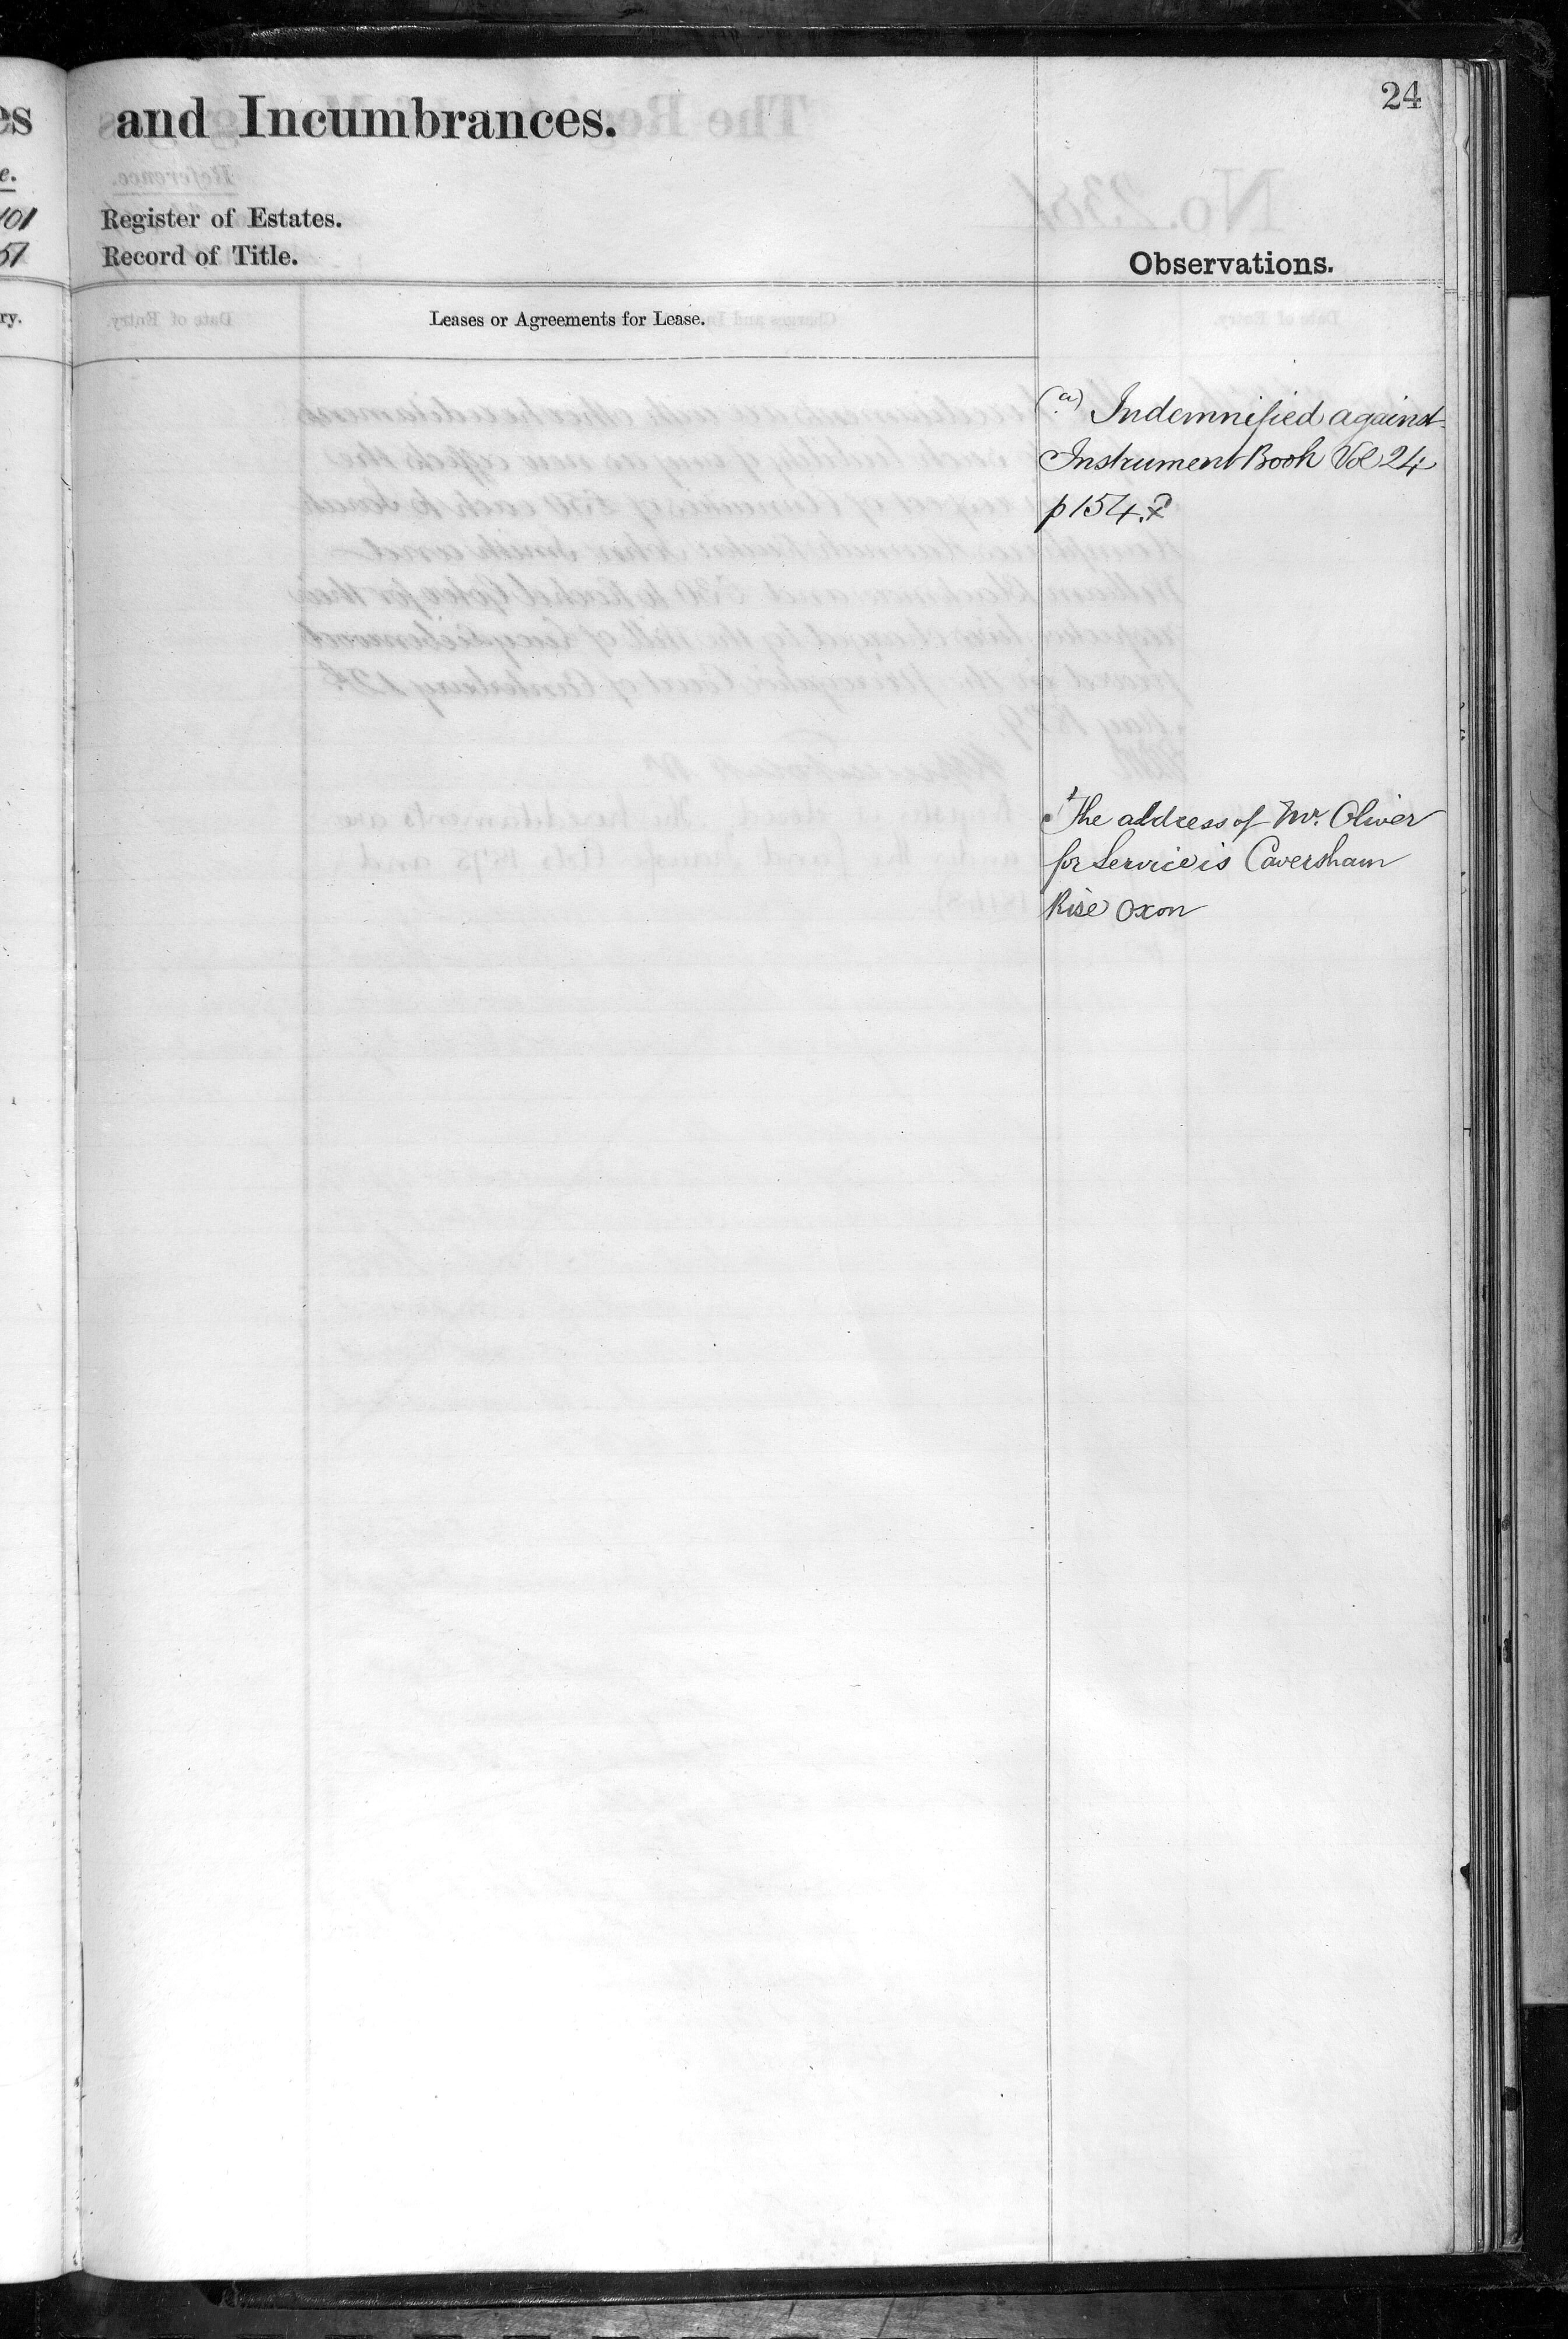 24
es and Incumbrances.
e.
101 Register of Estates.
57 Record of Title.
Observations.
ry. Leases or Agreements for Lease.
(a) Indemnified against
Instrument Book Vol 24
p 154.
The address of Mr. Oliver
for Service is Caversham
Rise Oxon